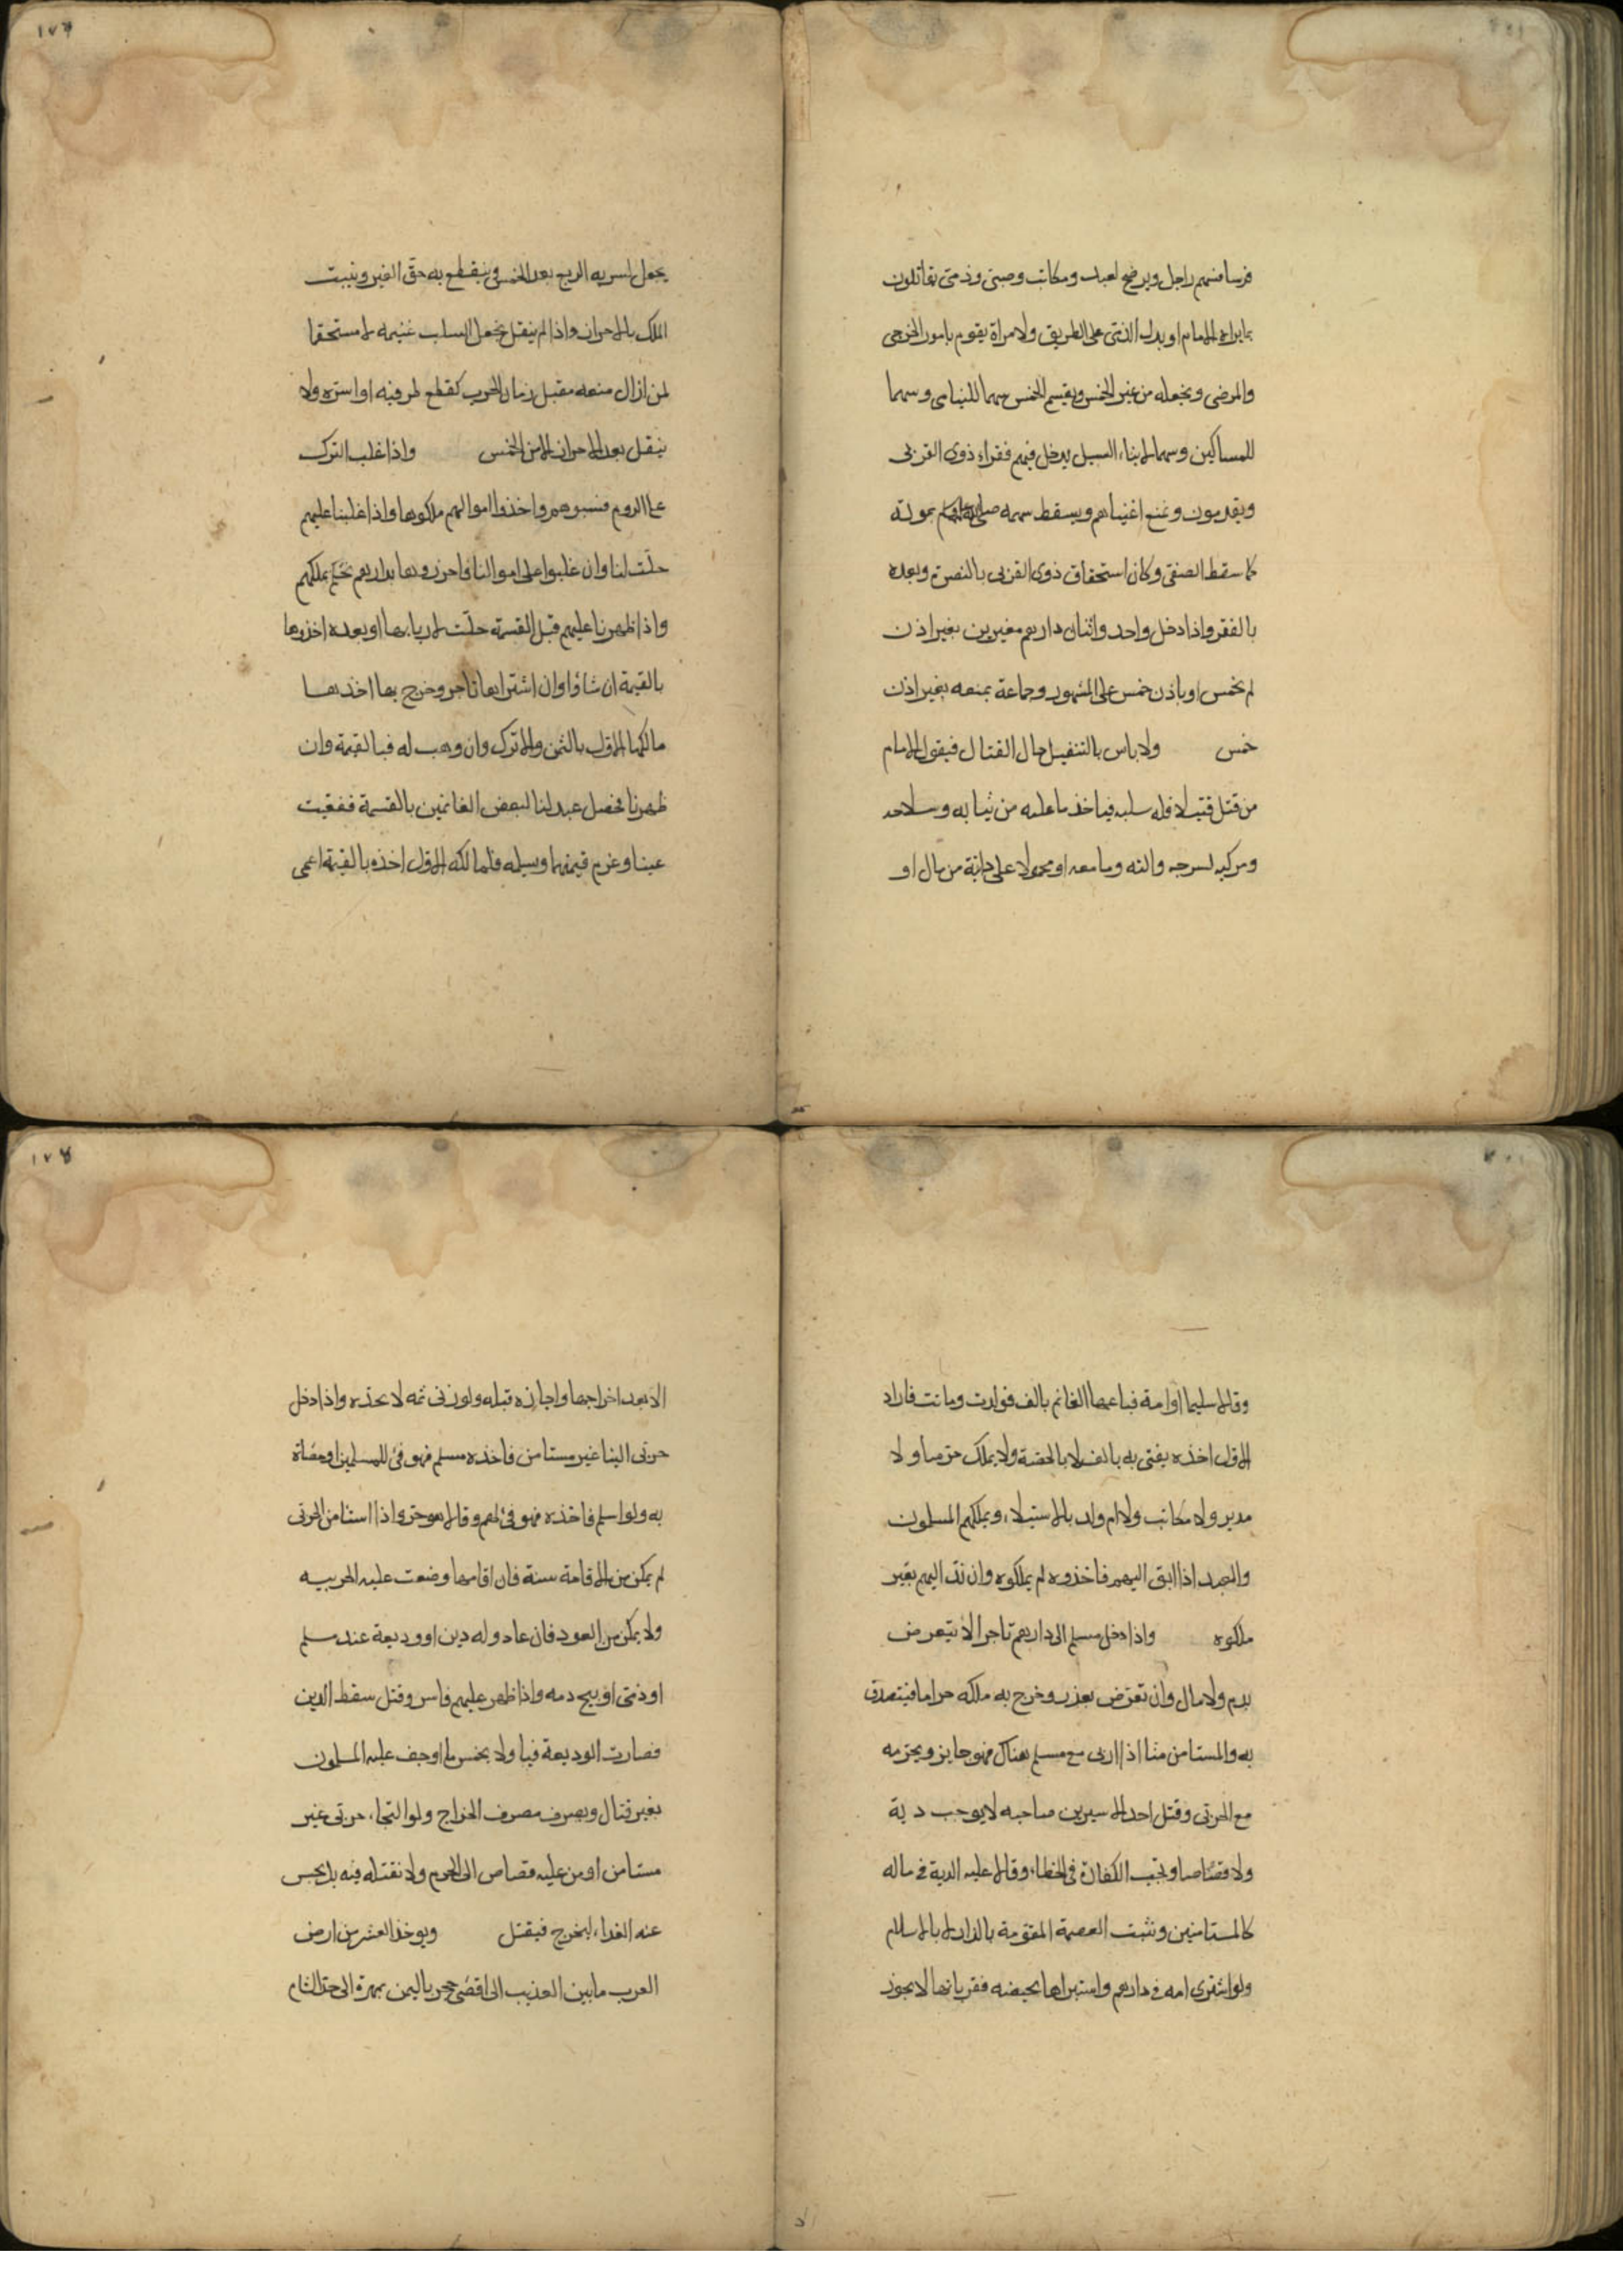 فرسا منهم راجل ويرضخ لعبد ومكاتب وصبى وذمى يقاتلون
بما يراه الامام او يدل الذمى على الطريق ولامراة يقوم بامور الجرحى
والمرضى ويجعله من غير الخمس ويقسم الخمس سهما لليتامى وسهما
للمساكين وسهما لابناء السبيل يدخل فيهم فقراء ذوى القربى
ويقدمون ويمنع اغنياهم ويسقط سهمه صلى الله عليه وسلم بموته
كما سقط الصفى وكان استحقاق ذوى القربى بالنصرة وبعده
بالفقر واذا دخل واحد واثنان دارهم مغيرين بغير اذن
لم يخمس او باذن خمس على المشهور وجماعة بمنعه بغير اذن
خمس ولا باس بالتنفيل حال القتال فيقول الامام
من قتل قتيلا فله سلبه فياخذ ما عليه من ثيابه وسلاحه
ومركبه بسرجه والته وما معه او محمولا على دابة من مال او
يجعل لسريه الربع بعد الخمس وينقطع به حق الغير ويثبت
الملك بالاحراز واذا لم ينفل نجعل السلب غنيمه لا مستحقا
لمن ازال منعه مقبل زمان الحرب كقطع طرفيه او اسره ولا
ينفل بعد الاحراز الا من الخمس واذا غلب الترك
على الروم فسبوهم واخذوا اموالهم ملكوها واذا غلبنا عليهم
حلت لنا وان غلبوا على اموالنا واحرزوها بدارهم نحكم بملكهم
واذا ظهرنا عليهم قبل القسمة حلت لاربابها او بعده اخذوها
بالقيمة ان شاؤا وان اشتراها تاجر وخرج بها اخذها
مالكها الاول بالثمن والا ترك وان وهب له فبالقيمة وان
ظهرنا فحصل عبد لنا لبعض الغانمين بالقسمة ففقيت
عينا وغرم قيمتها وسلمه فلمالكه الاول اخذه بالقيمة اعمى
وقالا سليما او امة فباعها الغانم بالف فولدت وماتت فاراد
الاول اخذه يفتى به بالف لا بالحصة ولا يملك حر منا ولا
مدبر ولا مكاتب ولا ام ولد بالاستيلاء ويملكهم المسلمون
والعبد اذا ابق اليهم فاخذوه لم يملكوه وان ند اليهم بعير
ملكوه واذا دخل مسلم الى دارهم تاجرا لا يتعرض
بدم ولا مال وان تعرض بغدر وخرج به ملكه حراما فيتصدق
به والمستامن منا اذا اربى مع مسلم هناك فهو جايز ويحرمه
مع الحربى وقتل احد الاسيرين صاحبه لا يوجب دية
ولا قصاصا وتجب الكفارة فى الخطاء وقالا عليه الدية فى ماله
كالمستامنين ونثبت العصمة المقومة بالدار لا بالاسلام
ولو اشترى امه فى دارهم واستبراها بحيضه فقربانها لا يجوز
الا بعد اخراجها واجازه قبله ولو زنى ثمه لا نحده واذا دخل
حربى الينا غير مستامن فاخذه مسلم فهو فئ للمسلمين وخصاه
به ولو اسلم فاخذه فهو فئ لهم وقالا هو حر واذا استامن الحربى
لم يمكن من الاقامة سنة فان اقامها وضعت عليه الجزيه
ولا يمكن من العود فان عاد وله دين او وديعة عند مسلم
او ذمى ابيح دمه واذا ظهر عليهم فاسر وقتل سقط الدين
فصارت الوديعة فيا ولا يخمس ما اوجف عليه المسلمون
بغير قتال ويصرف مصرف الخراج ولو التجاء حربى غير
مستامن او من عليه قصاص الى الحرم ولا نقتله فيه بل يحبس
عنه الغداء ليخرج فيقتل ويوخذ العشر من ارض
العرب ما بين العذيب الى اقصى حجر باليمن بمهرة الى حد الشام